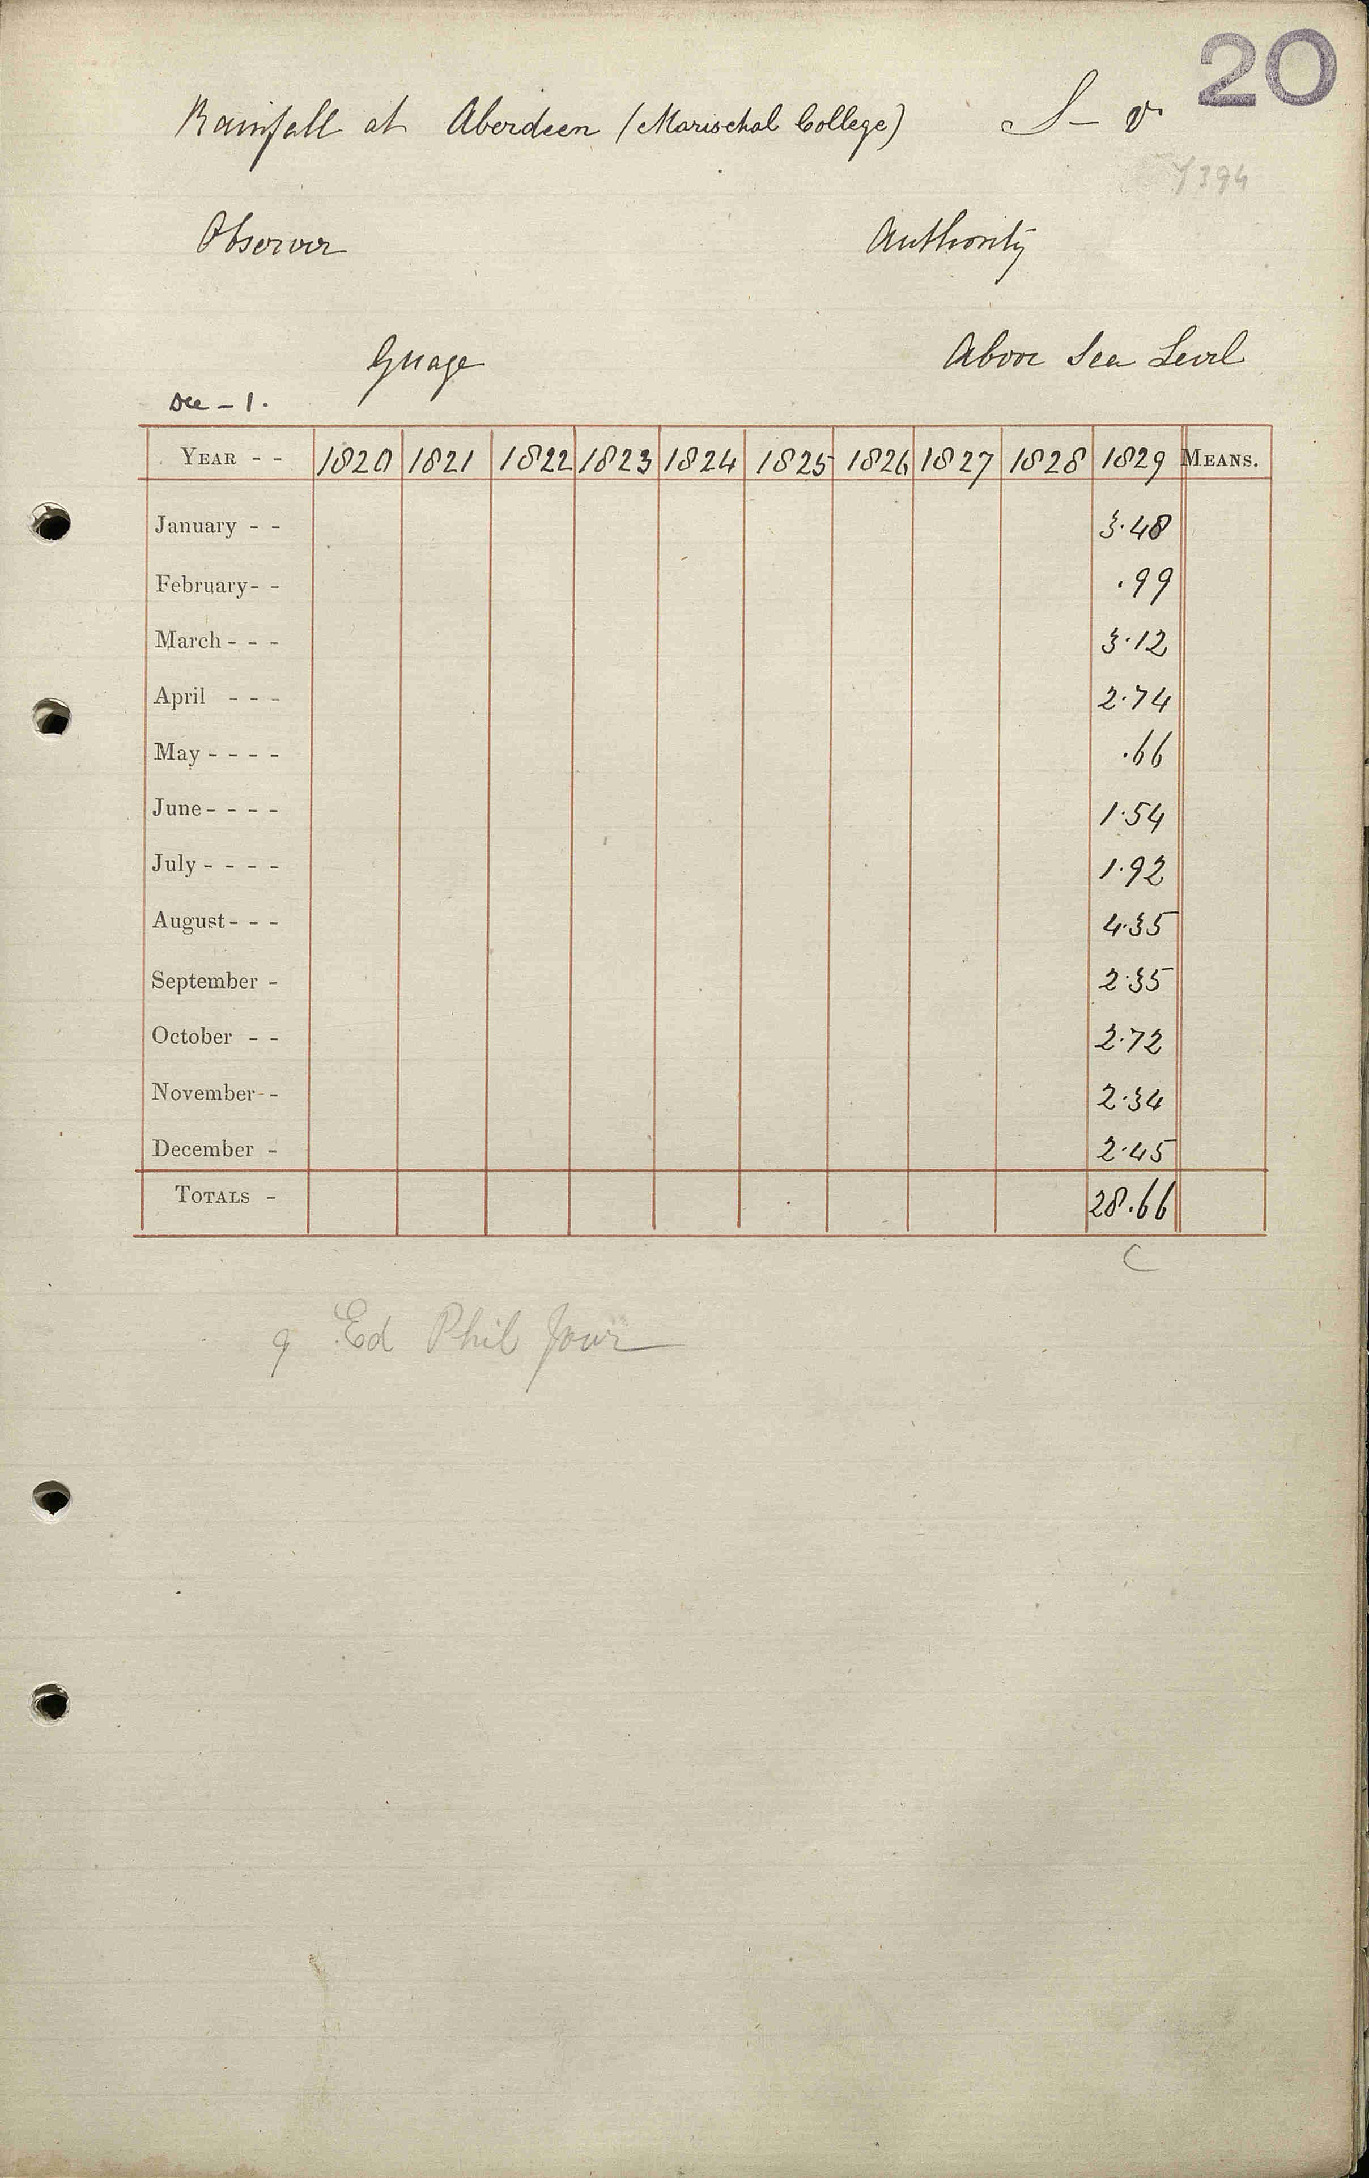 20
Rainfall at Aberdeen (Marischal College) S - v
Y394
Observer Authority
Guage Above Sea Level
Dee - 1.
YEAR - - 1820 1821 1822 1823 1824 1825 1826 1827 1828 1829 MEANS.
January - - 3.48
February - - .99
March - - - 3.12
April - - - 2.74
May - - - - .66
June - - - - 1.54
July - - - - 1.92
August - - - 4.35
September - 2.35
October - - 2.72
November - - 2.34
December - 2.45
TOTALS - 28.66
C
Ed Phil Jour